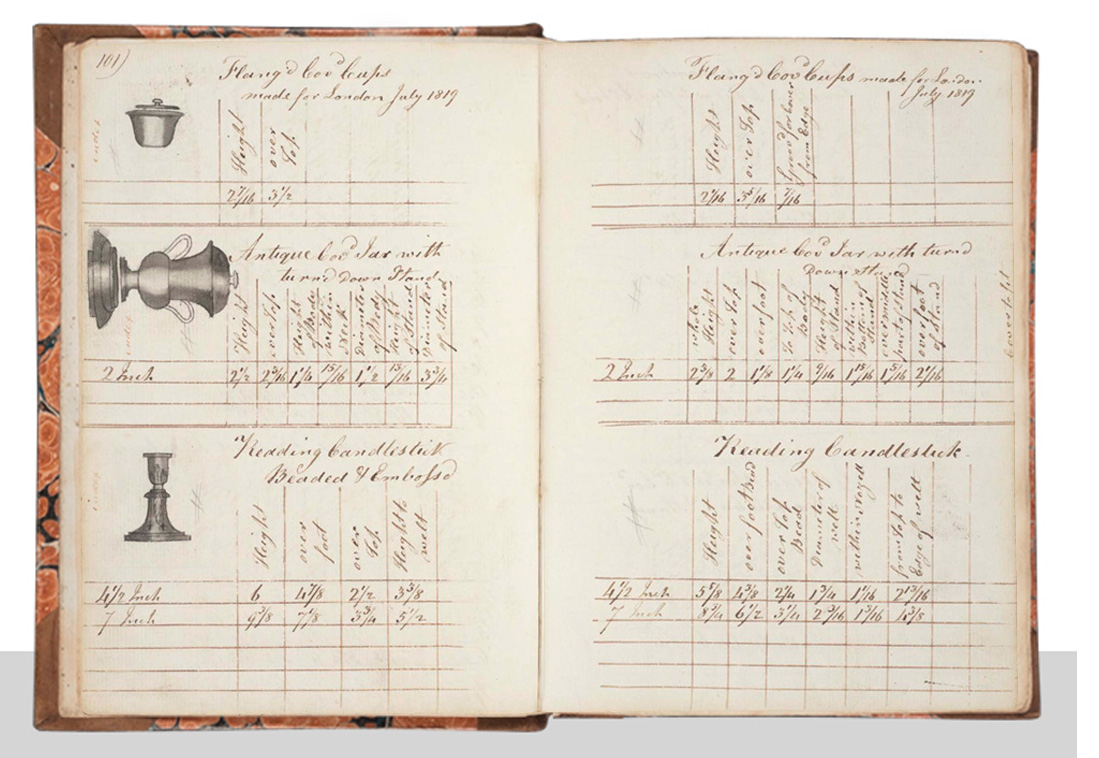 101)
Flang'd Cov'd Cups
made for London July 1819
Height
over Top
2 7/16 3 1/2
Antique Cov'd Jar with
turn'd down Stand
Height
over Top
Height of Body
within Neck
Diameter of Body
Height of Stand
Diameter of Stand
2 Inch 2 1/2 2 3/16 1 1/4 15/16 1 1/2 13/16 3 3/4
Reading Candlestick
Beaded & Emboss'd
Height
over foot
over Top
Height to well
4 1/2 Inch 6 4 7/8 2 1/2 3 3/8
7 Inch 9 3/8 7 1/8 3 3/4 5 1/2
Flang'd Cov'd Cups made for London
July 1819
Height
over Top
Groov'd for Cover from Edge
2 7/16 3 5/16 7/16
Antique Cov'd Jar with turn'd
down Stand
whole Height
over Top
over foot
To Top of Body
Height of Stand
within Bottom of Stand
over middle part of Stand
over foot of Stand
2 Inch 2 5/8 2 1 1/8 1 1/4 9/16 1 15/16 1 5/16 2 1/16
Reading Candlestick
Height
over foot Bead
over Top Bead
Diameter of well
within Nozell
from Top to Edge of well
4 1/2 Inch 5 5/8 4 3/8 2 1/4 1 3/4 1 1/16 2 13/16
7 Inch 8 3/4 6 1/2 3 1/4 2 3/16 1 3/16 4 3/8